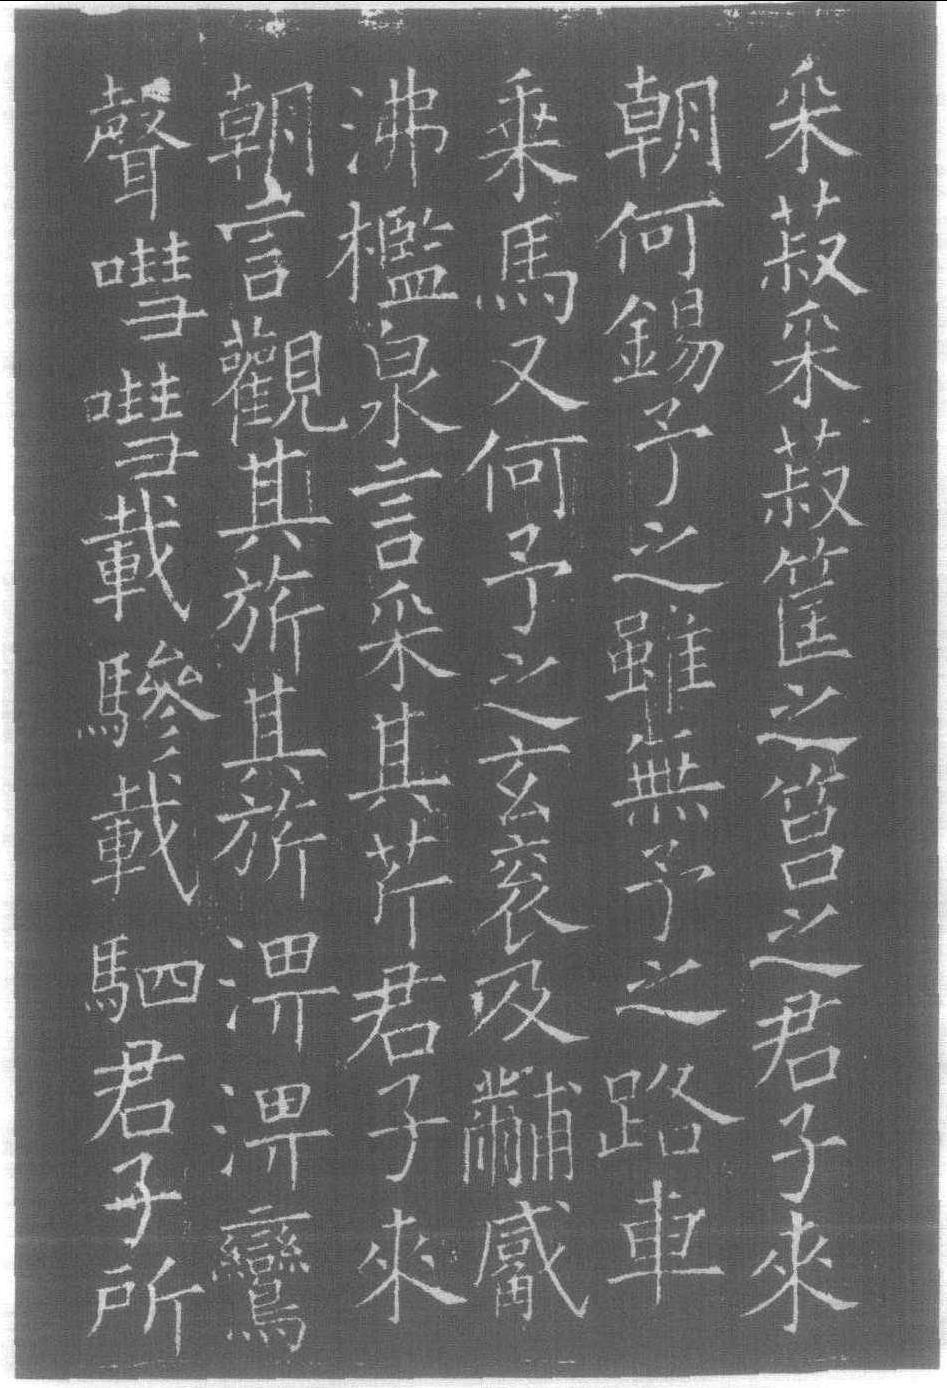 采菽采菽筐之筥之君子來
朝何錫予之雖無予之路車
乗馬又何予之玄衮及黼觱
沸檻泉言采其芹君子來
朝言觀其旂其旂淠淠鸞
聲嘒嘒載驂載駟君子所